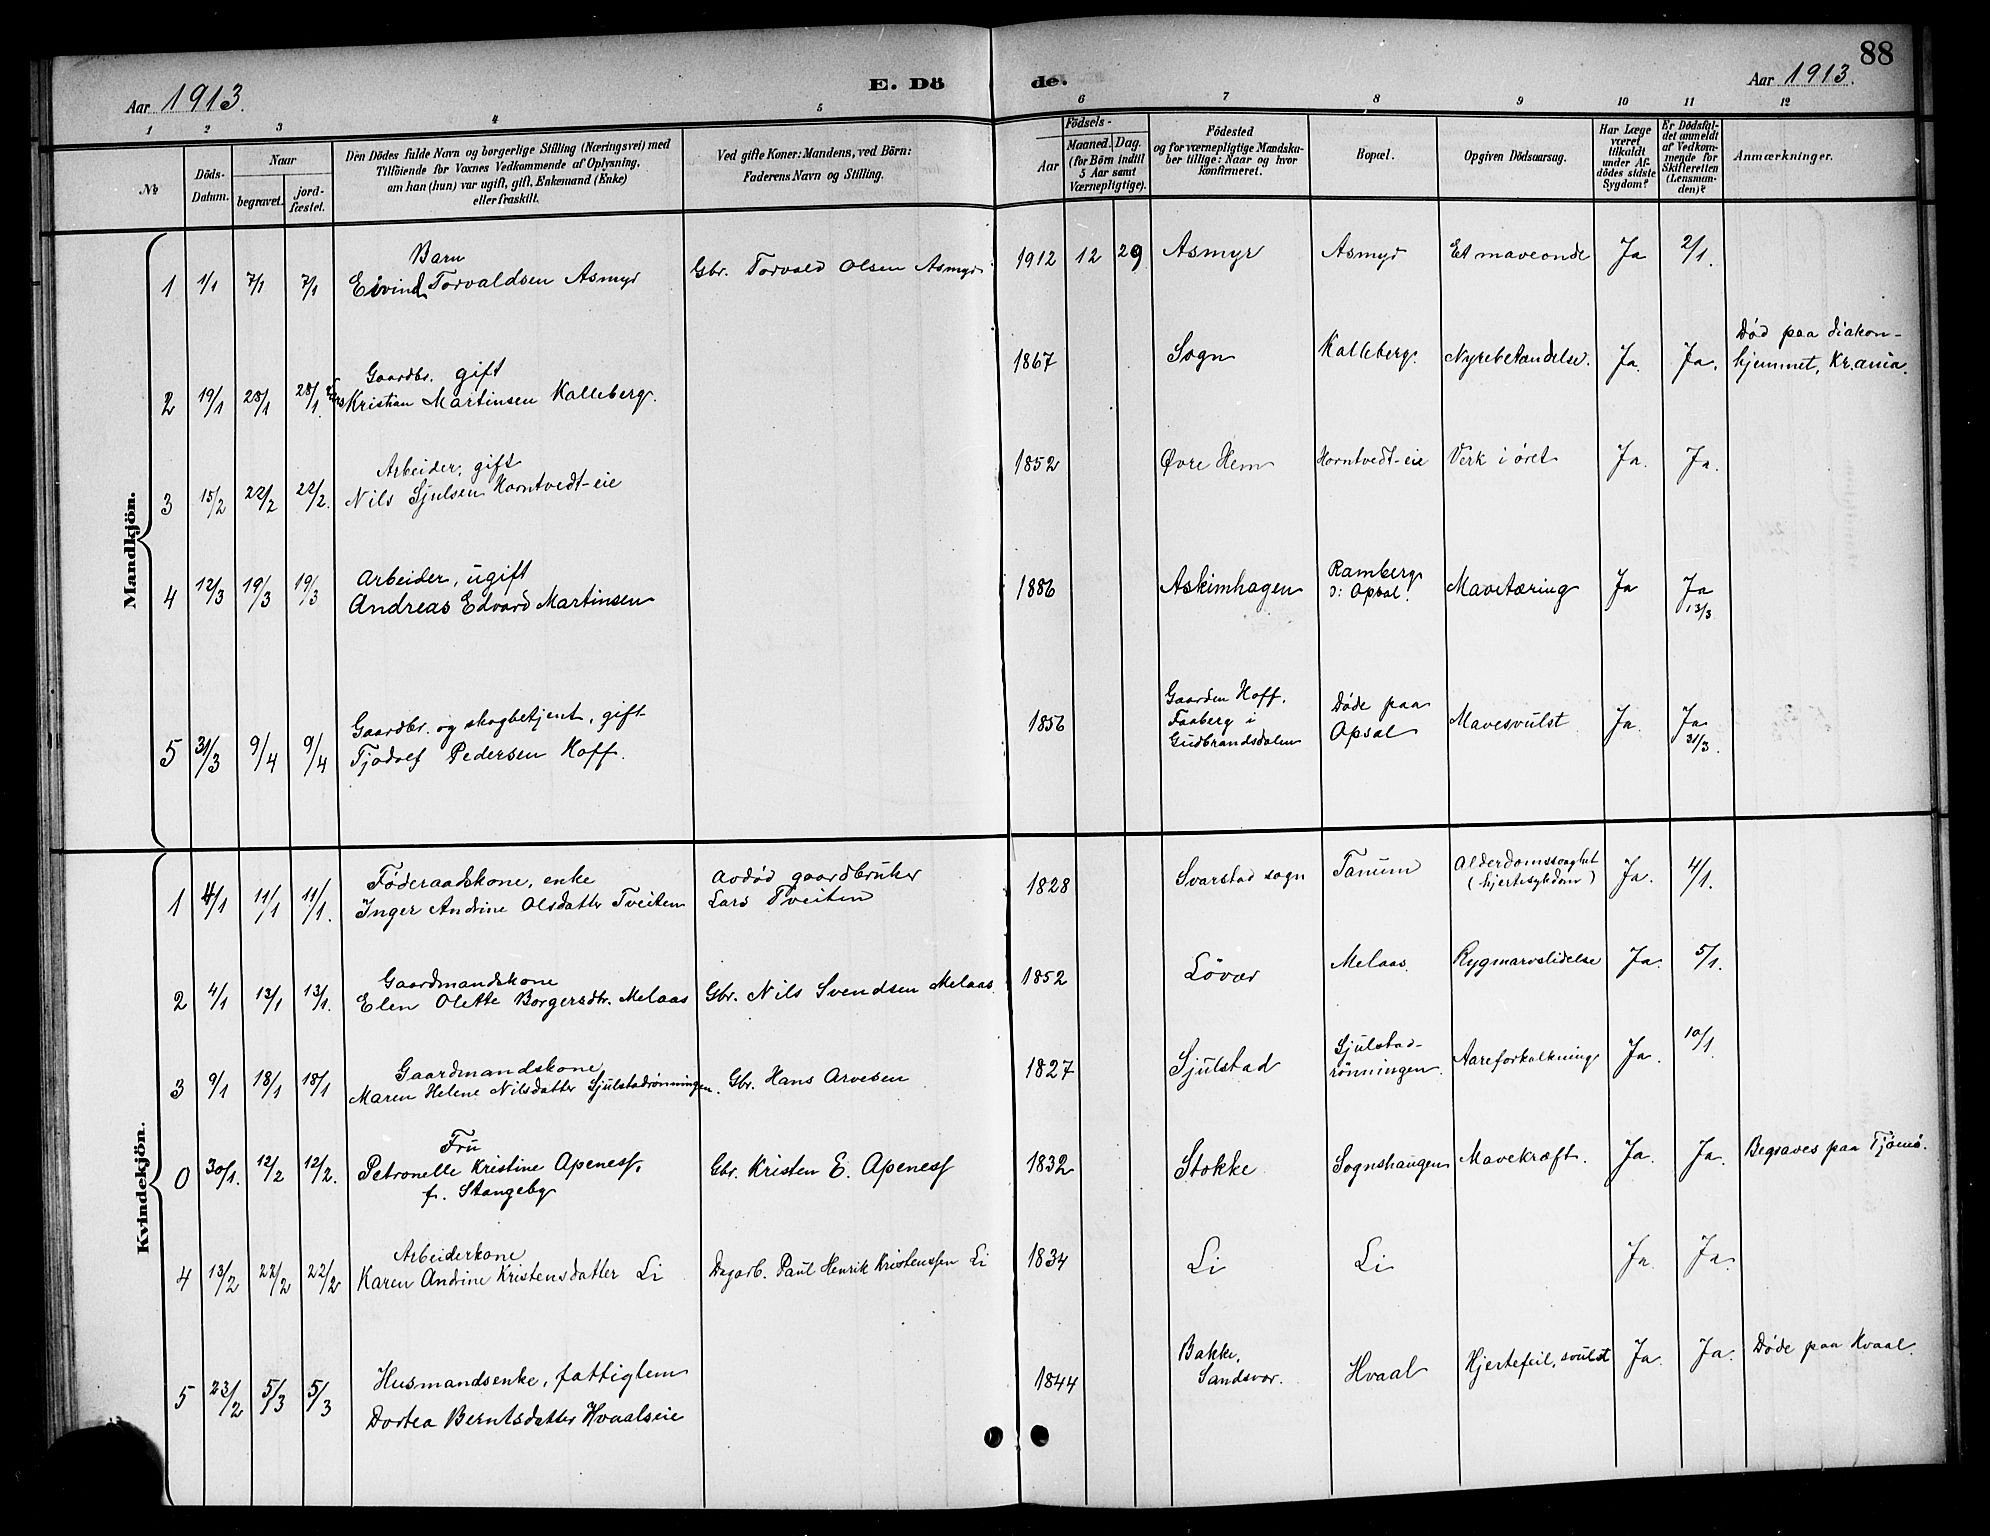 88
Aar 1913.
E. Dö de.
Aar 1913.
1 2 3 4 5 6 7 8 9 10 11 12
No
Döds-
Datum.
Naar
begravet.
jord-
fæstet.
Den Dödes fulde Navn og borgerlige Stilling (Næringsvei) med
Tilföiende for Voxnes Vedkommende af Oplysning,
om han (hun) var ugift, gift, Enkemand (Enke)
eller fraskilt.
Ved gifte Koner: Mandens, ved Börn:
Faderens Navn og Stilling.
Födsels-
Aar
Maaned.
Dag.
(for Börn indtil
5 Aar samt
Værnepligtige).
Födested
og for værnepligtige Mandska-
ber tillige: Naar og hvor
konfirmeret.
Bopæl.
Opgiven Dödsaarsag.
Har Læge
været
tilkaldt
under Af-
dödes sidste
Sygdom?
Er Dödsfal-
det anmeldt
af Vedkom-
mende for
Skifteretten
(Lensman-
den)?
Anmærkninger.
Mandkjön.
Barn
1 1/1 7/1 7/1 Eivind Torvaldsen Asmyr Gbr. Torvald Olsen Asmyr 1912 12 29 Asmyr Asmyr Et maveonde Ja 2/1.
Gaardbr. gift
2 19/1 28/1 28/1. Kristian Martinsen Kalleberg. 1867 Sogn Kalleberg. Nyrebetændelse. Ja. Ja. Død paa diakon-
hjemmet, Kr.ania.
Arbeider, gift
3 15/2 22/2 22/2. Nils Sjulsen Horntvedt-eie 1852 Øvre Hem Horntvedt-eie Verk i øret Ja. Ja.
Arbeider, ugift
4 12/3 19/3 19/3 Andreas Edvard Martinsen 1886 Askimhagen Ramberg
o: Opsal. Mavetæring Ja Ja
13/3
Gaardbr. og skogbetjent, gift
5 31/3 9/4 9/4 Tjodolf Pedersen Hoff. 1856 Gaarden Hoff,
Faaberg i
Gudbrandsdalen Døde paa
Opsal Mavesvulst Ja. Ja
31/3.
Kvindekjön.
Føderaadskone, enke Avdød gaardbruker
1 4/1 11/1 11/1. Inger Andrine Olsdatter Tveiten Lars Tveiten 1828 Svarstad sogn Tanum Alderdomssvaghet
(hjertesykdom) Ja. 4/1.
Gaardmandskone
2 4/1 13/1 13/1. Elen Olette Borgersdtr. Melaas Gbr. Nils Svendsen Melaas 1852 Løvær Melaas. Rygmarvslidelse Ja. 5/1.
Gaardmandskone
3 9/1 18/1 18/1 Maren Helene Nilsdatter Sjulstadrønningen. Gbr. Hans Arvesen 1827 Sjulstad Sjulstad-
rønningen. Aareforkalkning Ja. 10/1.
Fru
0 30/1. 12/2 12/2. Petronelle Kristine Apeness, Gbr. Kristen E. Apeness 1832 Stokke Sognshaugen Mavekræft. Ja. Ja. Begraves paa Tjømø.
f. Stangeby
Arbeiderkone
4 13/2 22/2 22/2 Karen Andrine Kristensdatter Li Dagarb. Paul Henrik Kristenssen Li 1834 Li Li Ja. Ja.
Husmandsenke, fattiglem
5 23/2 5/3 5/3 Dortea Berntsdatter Hvaalseie 1844 Bakke,
Sandsvær. Hvaal Hjertefeil, svulst Ja. Ja. Døde paa Hvaal